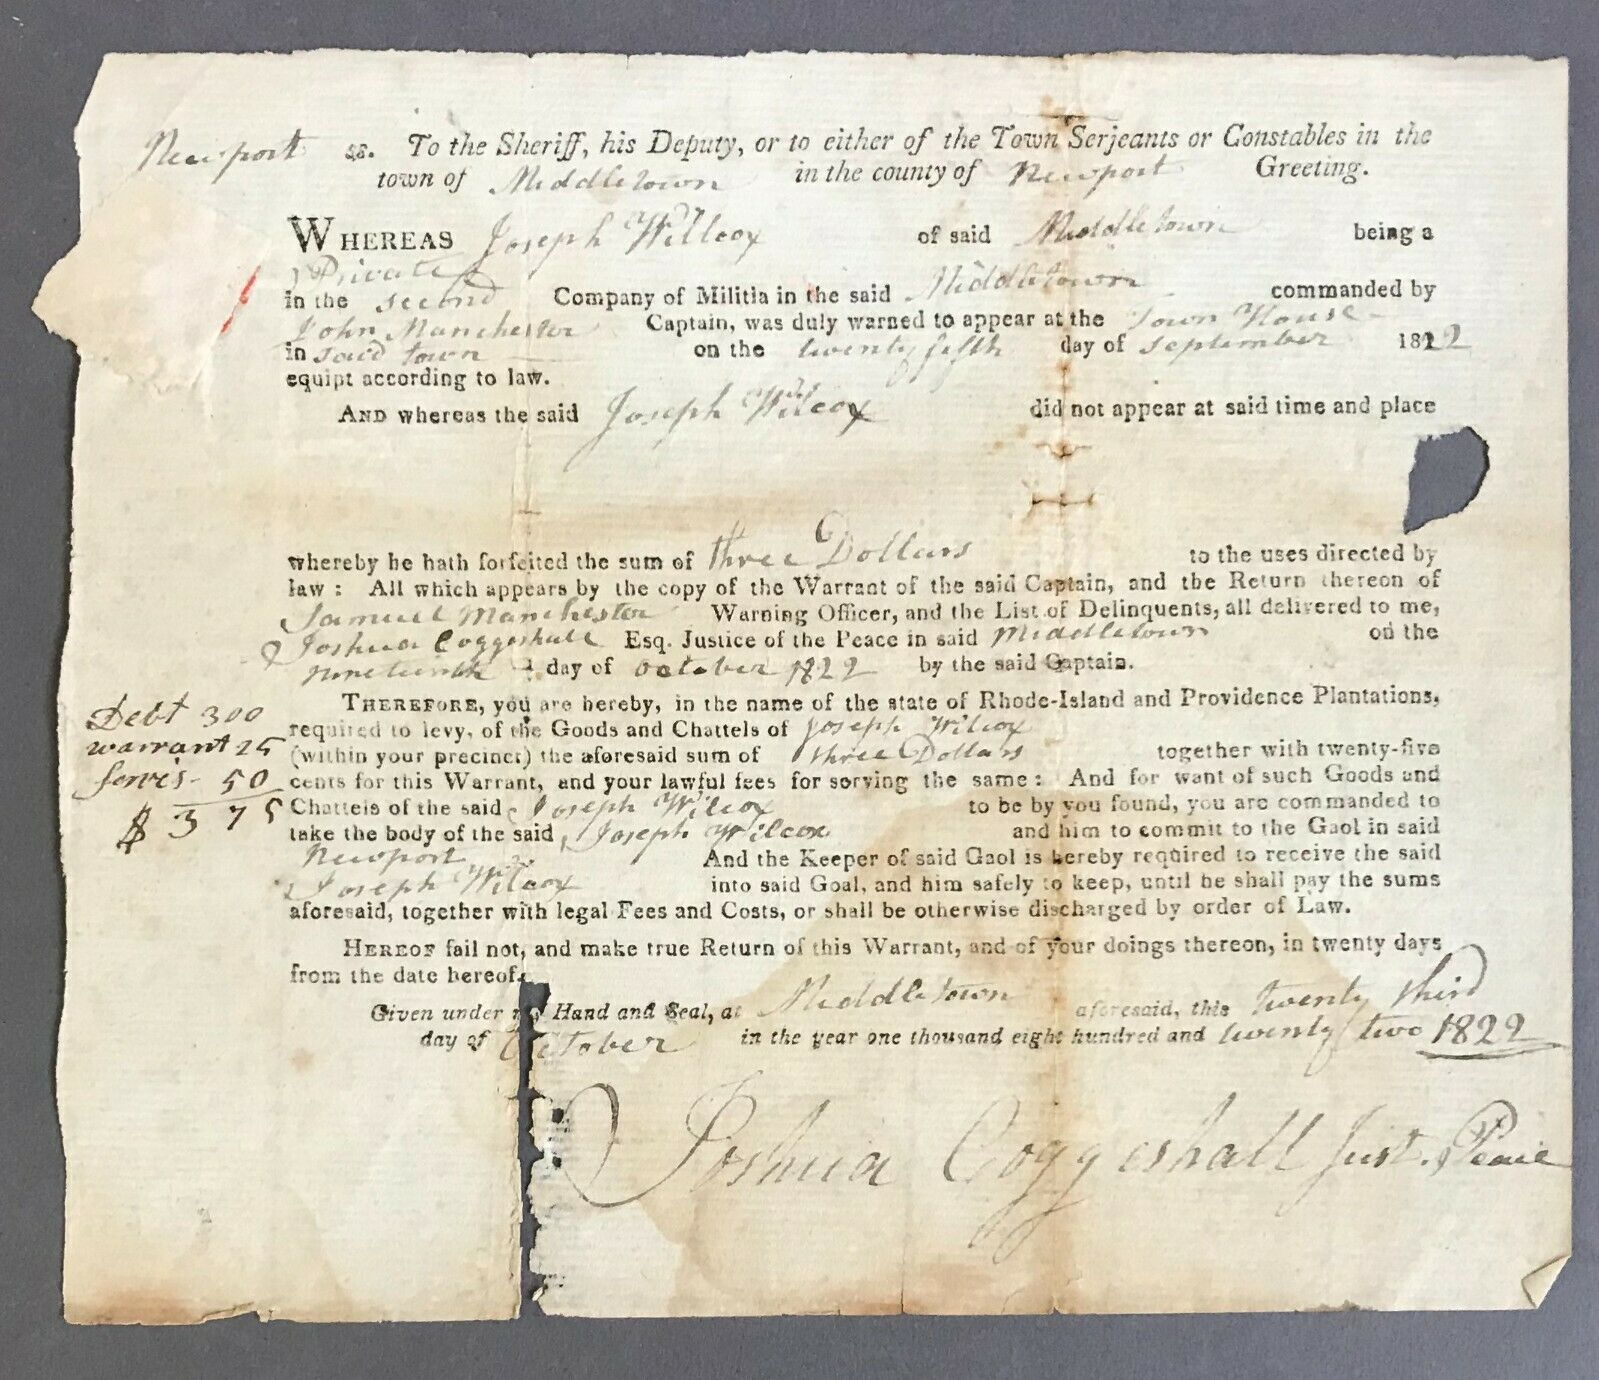 Newport ss. To the Sheriff, his Deputy, or to either of the Town Serjeants or Constables in the
town of Middletown in the county of Newport Greeting.
WHEREAS Joseph Willcox of said Middletown being a
Private
in the second Company of Militia in the said Middletown commanded by
John Manchester Captain, was duly warned to appear at the Town House
in said town on the twenty fifth day of September 1822
equipt according to law.
AND whereas the said Joseph Wilcox did not appear at said time and place
whereby he hath forfeited the sum of three Dollars to the uses directed by
law: All which appears by the copy of the Warrant of the said Captain, and the Return thereon of
Samuel Manchester Warning Officer, and the List of Delinquents, all delivered to me,
Joshua Coggeshall Esq. Justice of the Peace in said Middletown on the
nineteenth day of October 1822 by the said Captain.
THEREFORE, you are hereby, in the name of the state of Rhode-Island and Providence Plantations,
Debt 300
required to levy, of the Goods and Chattels of Joseph Wilcox
warrant 25
(within your precinct) the aforesaid sum of three Dollars together with twenty-five
servis - 50
cents for this Warrant, and your lawful fees for serving the same: And for want of such Goods and
$ 3 75
Chattels of the said Joseph Wilcox to be by you found, you are commanded to
take the body of the said Joseph Wilcox and him to commit to the Gaol in said
Newport And the Keeper of said Gaol is hereby required to receive the said
Joseph Wilcox into said Goal, and him safely to keep, until he shall pay the sums
aforesaid, together with legal Fees and Costs, or shall be otherwise discharged by order of Law.
HEREOF fail not, and make true Return of this Warrant, and of your doings thereon, in twenty days
from the date hereof.
Given under my Hand and Seal, at Middletown aforesaid, this twenty third
day of October in the year one thousand eight hundred and twenty two 1822
Joshua Coggeshall Just. Peace